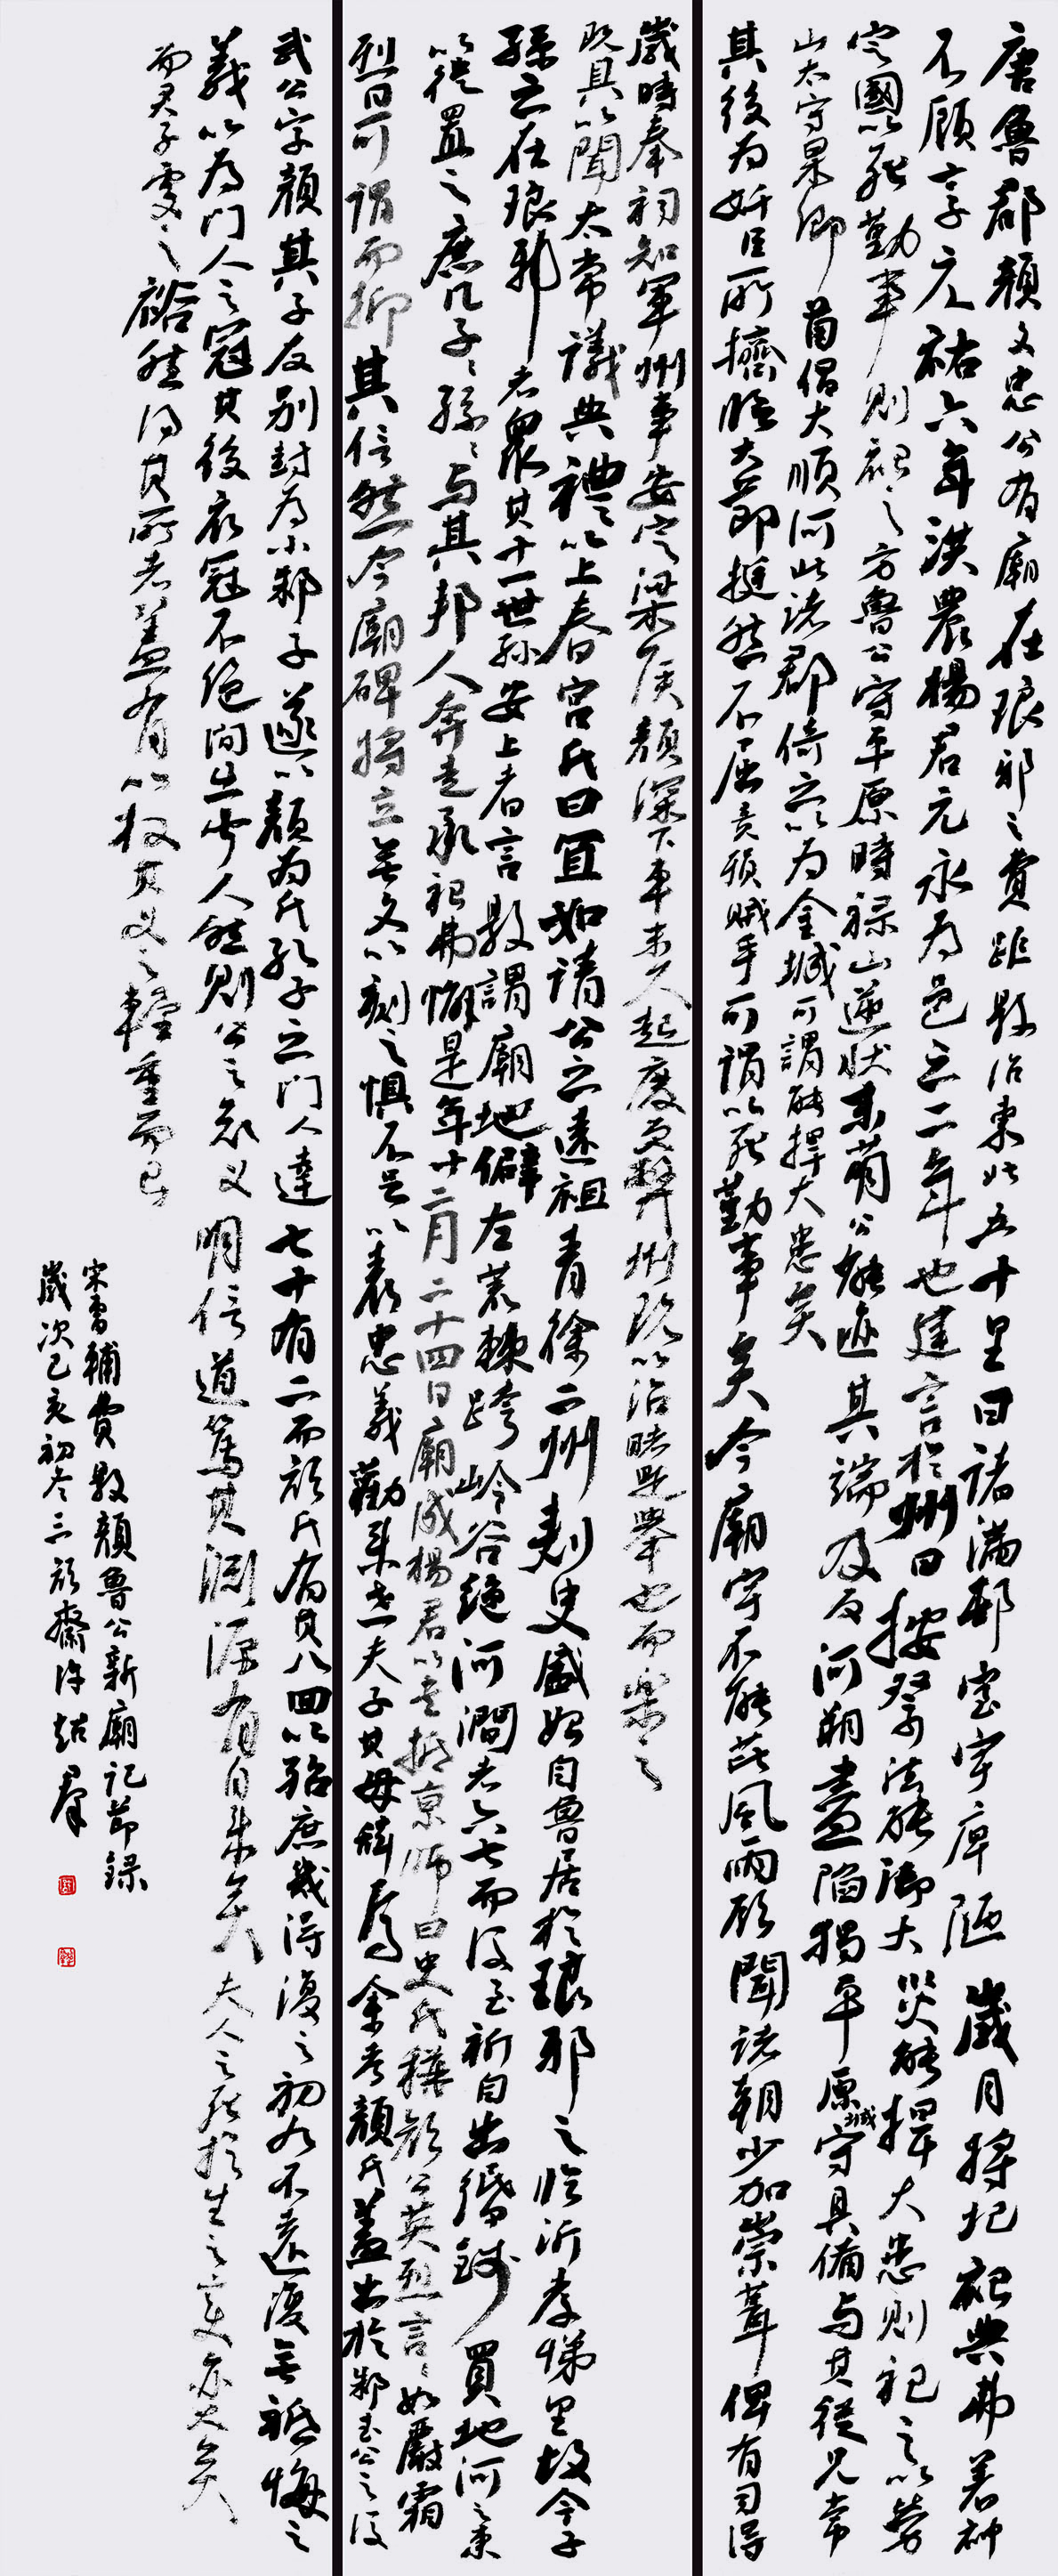 唐魯郡顏文忠公有廟在琅邪之費距縣治東北五十里曰諸滿邨室宇庳陋歲月將圮祀典弗著神
不顧享元祐六年洪農楊君元永為邑之二年也建言於州曰按祭法能御大災能捍大患則祀之以勞
定國以死勤事則祀之方魯公守平原時祿山逆狀未萌公能逆其端及反河朔盡陷獨平原城守具備与其從兄常
山太守杲卿首倡大順河北諸郡倚之以為金城可謂能捍大患矣
其後為奸臣所擠臨大節挺然不屈竟殞賊手可謂以死勤事矣今廟宇不能芘風雨願聞諸朝少加崇葺俾有司得
歲時奉祠知軍州事安定梁侯顏深下車未久起廢克弊州既以治賭是舉也而樂之
既具以聞太常議典禮以上春官氏曰宜如請公之遠祖青徐二州刺史盛始自魯居於琅邪之臨沂孝悌里故今子
孫之在琅邪者眾其十一世孫安上者言縣謂廟地僻左荒棘跨嶺谷絕河澗者六七而後至祈自出緡錢買地河之東
以徙置之庶几子子孫孫与其邦人奔走承祀弗懈是年廿二月二十四日廟成楊君以書抵京師曰史氏稱顏公英烈言言如嚴霜
烈日可謂而抑其信然今廟碑將立無文以刻之懼不足以表忠義勸來世夫子其毋辭焉余考顏氏蓋出於邾武公之後
武公字顏其子友別封為小邾子遂以顏為氏孔子之門人達七十有二而顏氏有其八回以殆庶幾得復之初九不遠復無祗悔之
義以為門人之冠其後衣冠不絕間生聞人然則公之忠义明信道篤其淵源有自來矣夫人之死於生之變亦大矣
而君子處之裕然得其所者蓋有以权其义之輕重而已
宋曹輔費縣顏魯公新廟記節錄
歲次己亥初冬三顧齋許超群